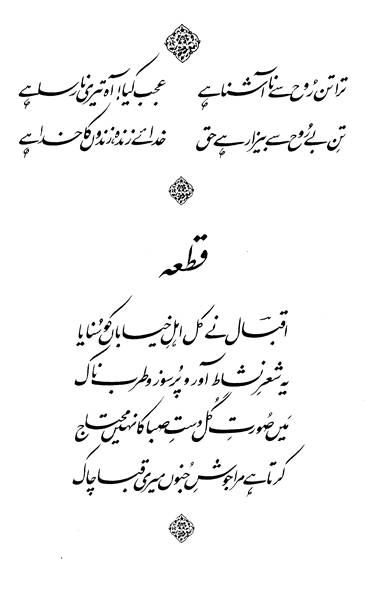 ترا تن رُوح سے ناآشنا ہے عجب کیا! آہ تیری نارسا ہے
تنِ بے رُوح سے بیزار ہے حق خدائے زندہ، زندوں کا خدا ہے
قطعہ
اقبالؔ نے کل اہلِ خیاباں کو سُنایا
یہ شعرِ نشاط آور و پُرسوز و طرب ناک
مَیں صُورتِ گُل دستِ صبا کا نہیں محتاج
کرتا ہے مرا جوشِ جُنوں میری قبا چاک